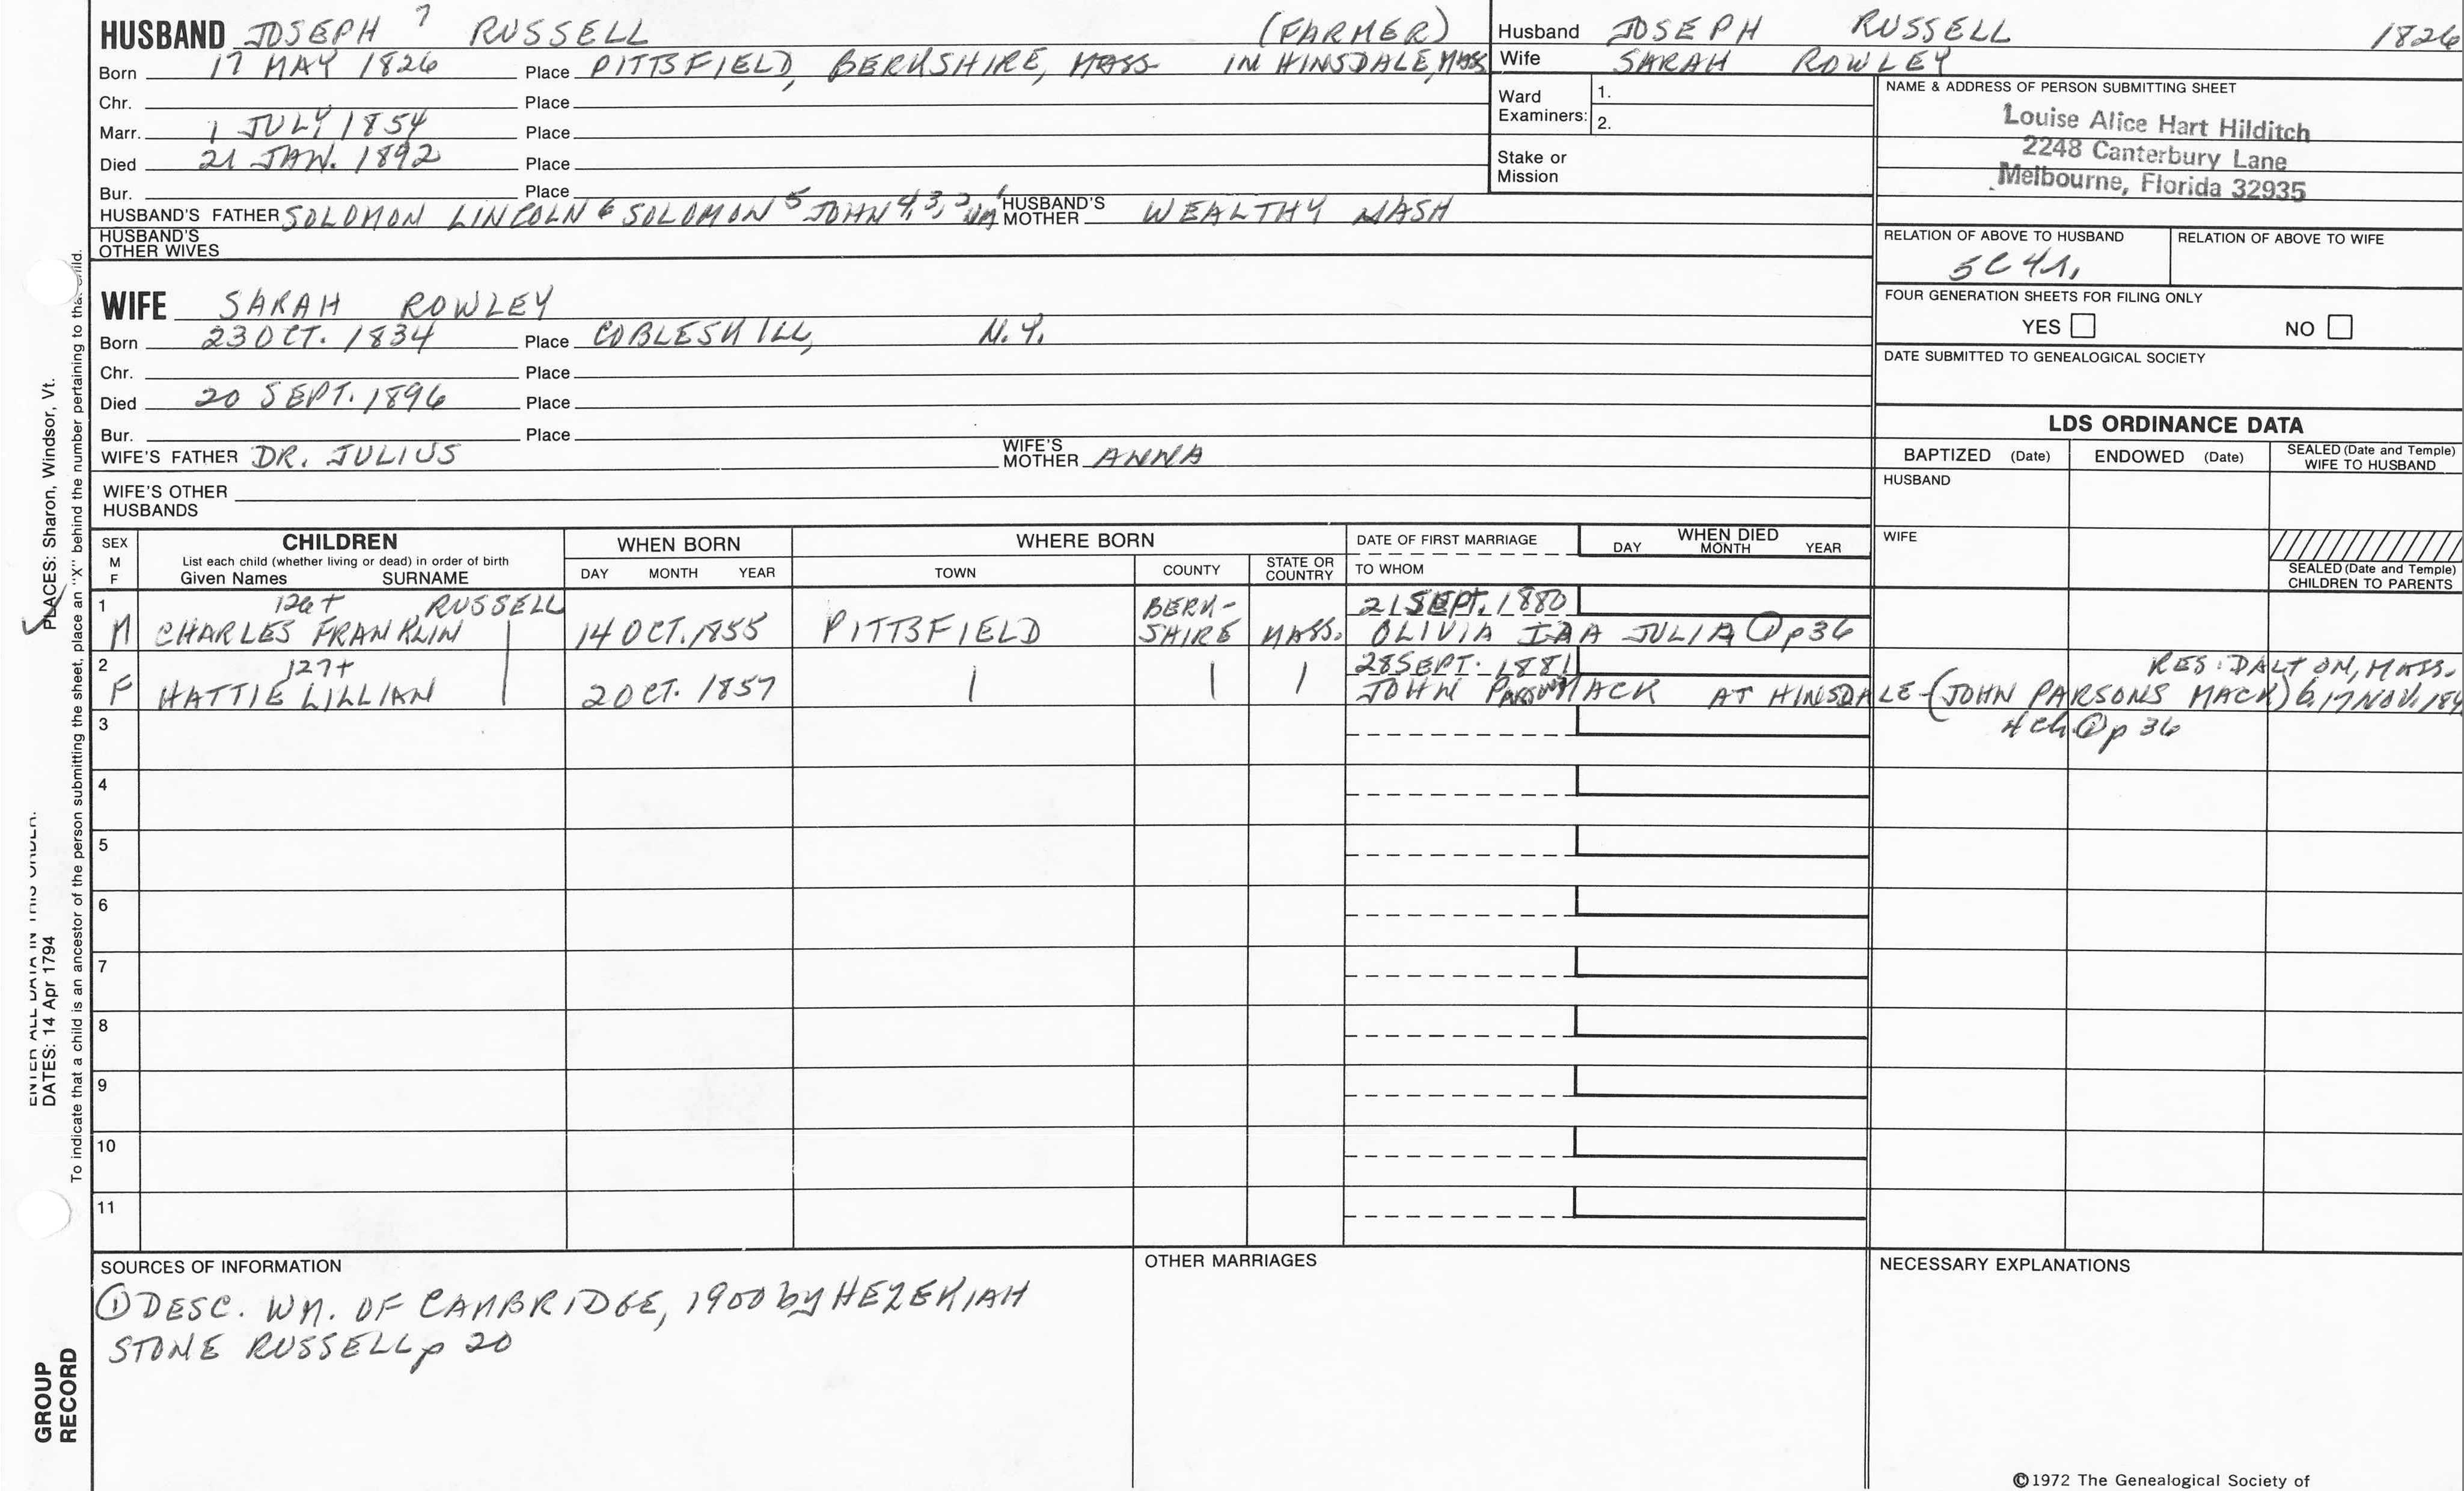 HUSBAND JOSEPH 7 RUSSELL (FARMER)
Born 17 MAY 1826 Place PITTSFIELD, BERKSHIRE, MASS IN HINSDALE, MASS
Chr. Place
Marr. 1 JULY 1854 Place
Died 21 JAN. 1892 Place
Bur. Place
HUSBAND'S FATHER SOLOMON LINCOLN 6 SOLOMON 5 JOHN 4, 3, 2 WM 1 HUSBAND'S MOTHER WEALTHY NASH
HUSBAND'S OTHER WIVES
Husband JOSEPH RUSSELL 1826
Wife SARAH ROWLEY
Ward Examiners: 1.
2.
Stake or Mission
NAME & ADDRESS OF PERSON SUBMITTING SHEET
Louise Alice Hart Hilditch
2248 Canterbury Lane
Melbourne, Florida 32935
RELATION OF ABOVE TO HUSBAND RELATION OF ABOVE TO WIFE
5C 4r.
FOUR GENERATION SHEETS FOR FILING ONLY
YES NO
DATE SUBMITTED TO GENEALOGICAL SOCIETY
WIFE SARAH ROWLEY
Born 23 OCT. 1834 Place COBLESKILL, N.Y.
Chr. Place
Died 20 SEPT. 1896 Place
Bur. Place
WIFE'S FATHER DR. JULIUS WIFE'S MOTHER ANNA
WIFE'S OTHER HUSBANDS
LDS ORDINANCE DATA
BAPTIZED (Date) ENDOWED (Date) SEALED (Date and Temple) WIFE TO HUSBAND
HUSBAND
WIFE
SEALED (Date and Temple) CHILDREN TO PARENTS
SEX M F CHILDREN WHEN BORN WHERE BORN DATE OF FIRST MARRIAGE WHEN DIED
List each child (whether living or dead) in order of birth
Given Names SURNAME DAY MONTH YEAR TOWN COUNTY STATE OR COUNTRY TO WHOM DAY MONTH YEAR
1 126+ RUSSELL BERK- 21 SEPT. 1880
M CHARLES FRANKLIN 14 OCT. 1855 PITTSFIELD SHIRE MASS. OLIVIA IDA JULIA ① p 36
2 127+ 28 SEPT. 1881 RES: DALTON, MASS.
F HATTIE LILLIAN 2 OCT. 1857 JOHN PARSONS MACK AT HINSDALE - (JOHN PARSONS MACK) b. 17 NOV. 184
3 4 ch ① p 36
4
5
6
7
8
9
10
11
SOURCES OF INFORMATION
① DESC. WM. OF CAMBRIDGE, 1900 by HEZEKIAH
STONE RUSSELL p 20
OTHER MARRIAGES
NECESSARY EXPLANATIONS
©1972 The Genealogical Society of
ENTER ALL DATA IN THIS ORDER:
DATES: 14 Apr 1794
PLACES: Sharon, Windsor, Vt.
To indicate that a child is an ancestor of the person submitting the sheet, place an "X" behind the number pertaining to that child.
GROUP
RECORD